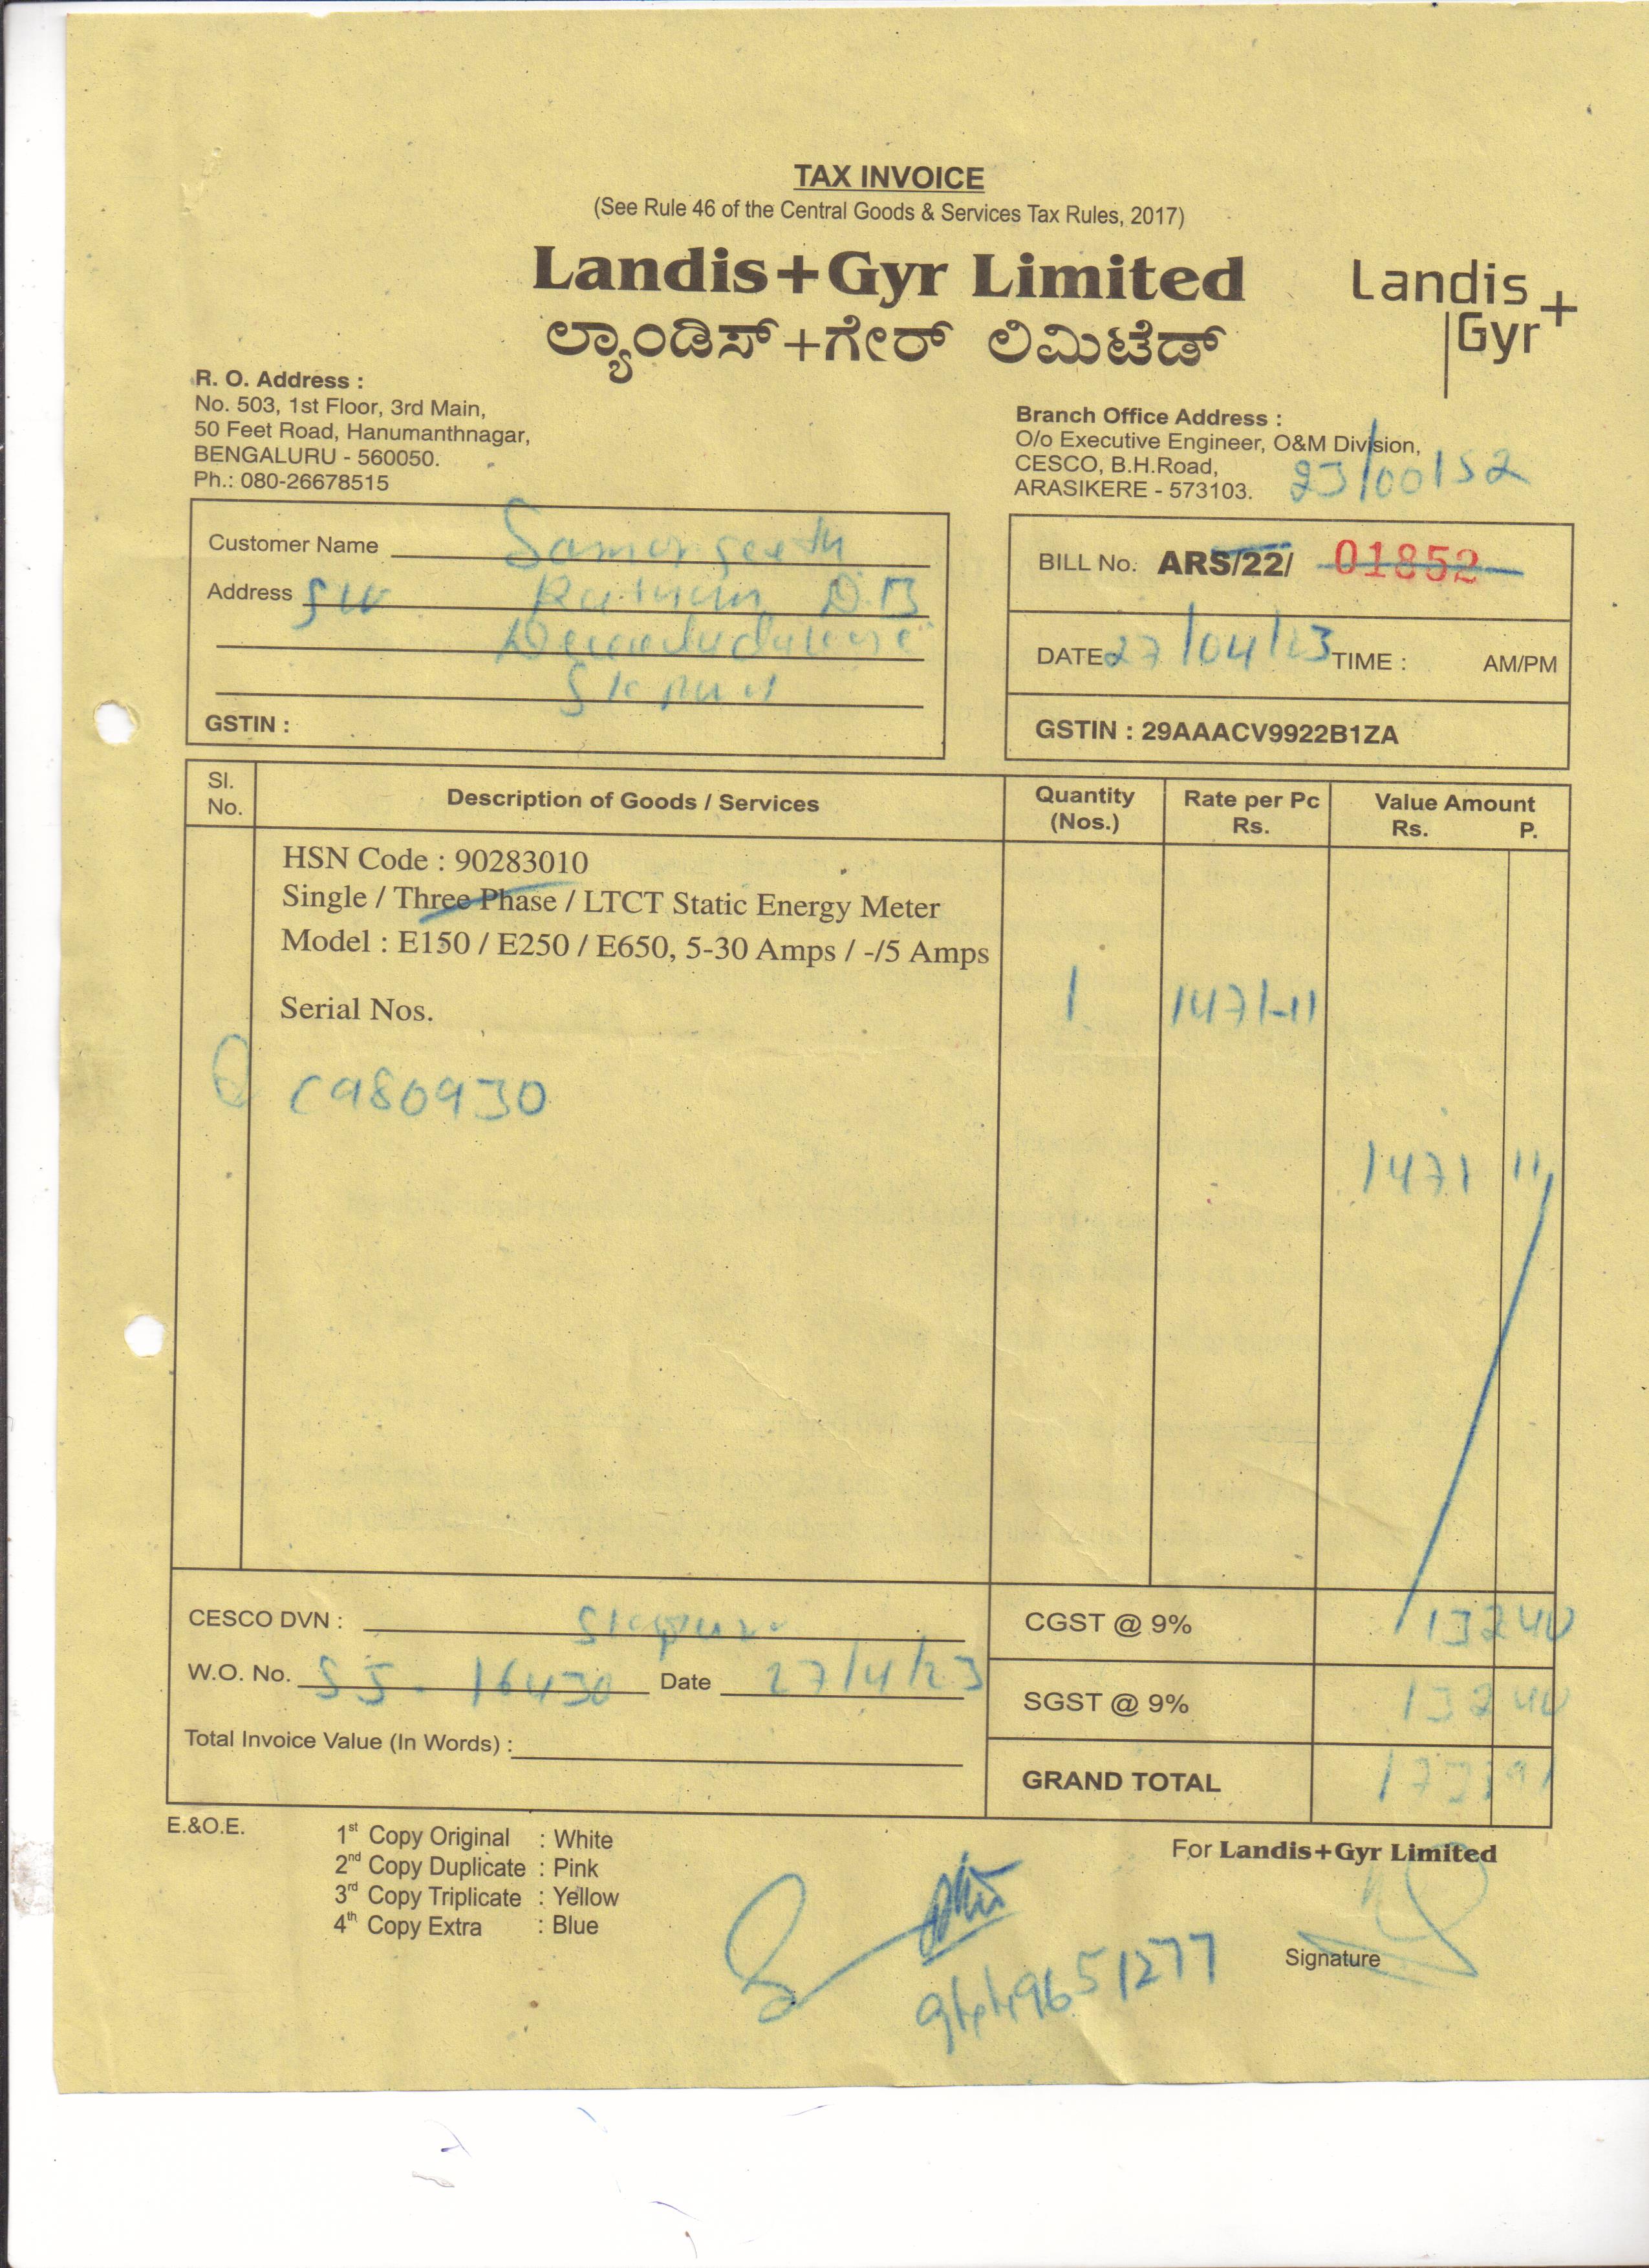 TAX INVOICE
(See Rule 46 of the Central Goods & Services Tax Rules, 2017)
Landis+Gyr Limited
ಲ್ಯಾಂಡಿಸ್+ಗೇರ್ ಲಿಮಿಟೆಡ್
Landis
Gyr+
R. O. Address :
No. 503, 1st Floor, 3rd Main,
50 Feet Road, Hanumanthnagar,
BENGALURU - 560050.
Ph.: 080-26678515
Branch Office Address :
O/o Executive Engineer, O&M Division,
CESCO, B.H.Road,
ARASIKERE - 573103.
23/00152
Customer Name
Address
GSTIN :
BILL No. ARS/22/ 01852
DATE 27/04/23 TIME : AM/PM
GSTIN : 29AAACV9922B1ZA
Sl. No. Description of Goods / Services Quantity (Nos.) Rate per Pc Rs. Value Amount Rs. P.
HSN Code : 90283010
Single / Three Phase / LTCT Static Energy Meter
Model : E150 / E250 / E650, 5-30 Amps / -/5 Amps
Serial Nos. 1 1471-11
C980930
1471 11
CESCO DVN :
CGST @ 9% 132 40
W.O. No. 16430 Date 27/4/23
SGST @ 9% 132 40
Total Invoice Value (In Words) :
GRAND TOTAL
E.&O.E.
1st Copy Original : White
2nd Copy Duplicate : Pink
3rd Copy Triplicate : Yellow
4th Copy Extra : Blue
For Landis+Gyr Limited
Signature